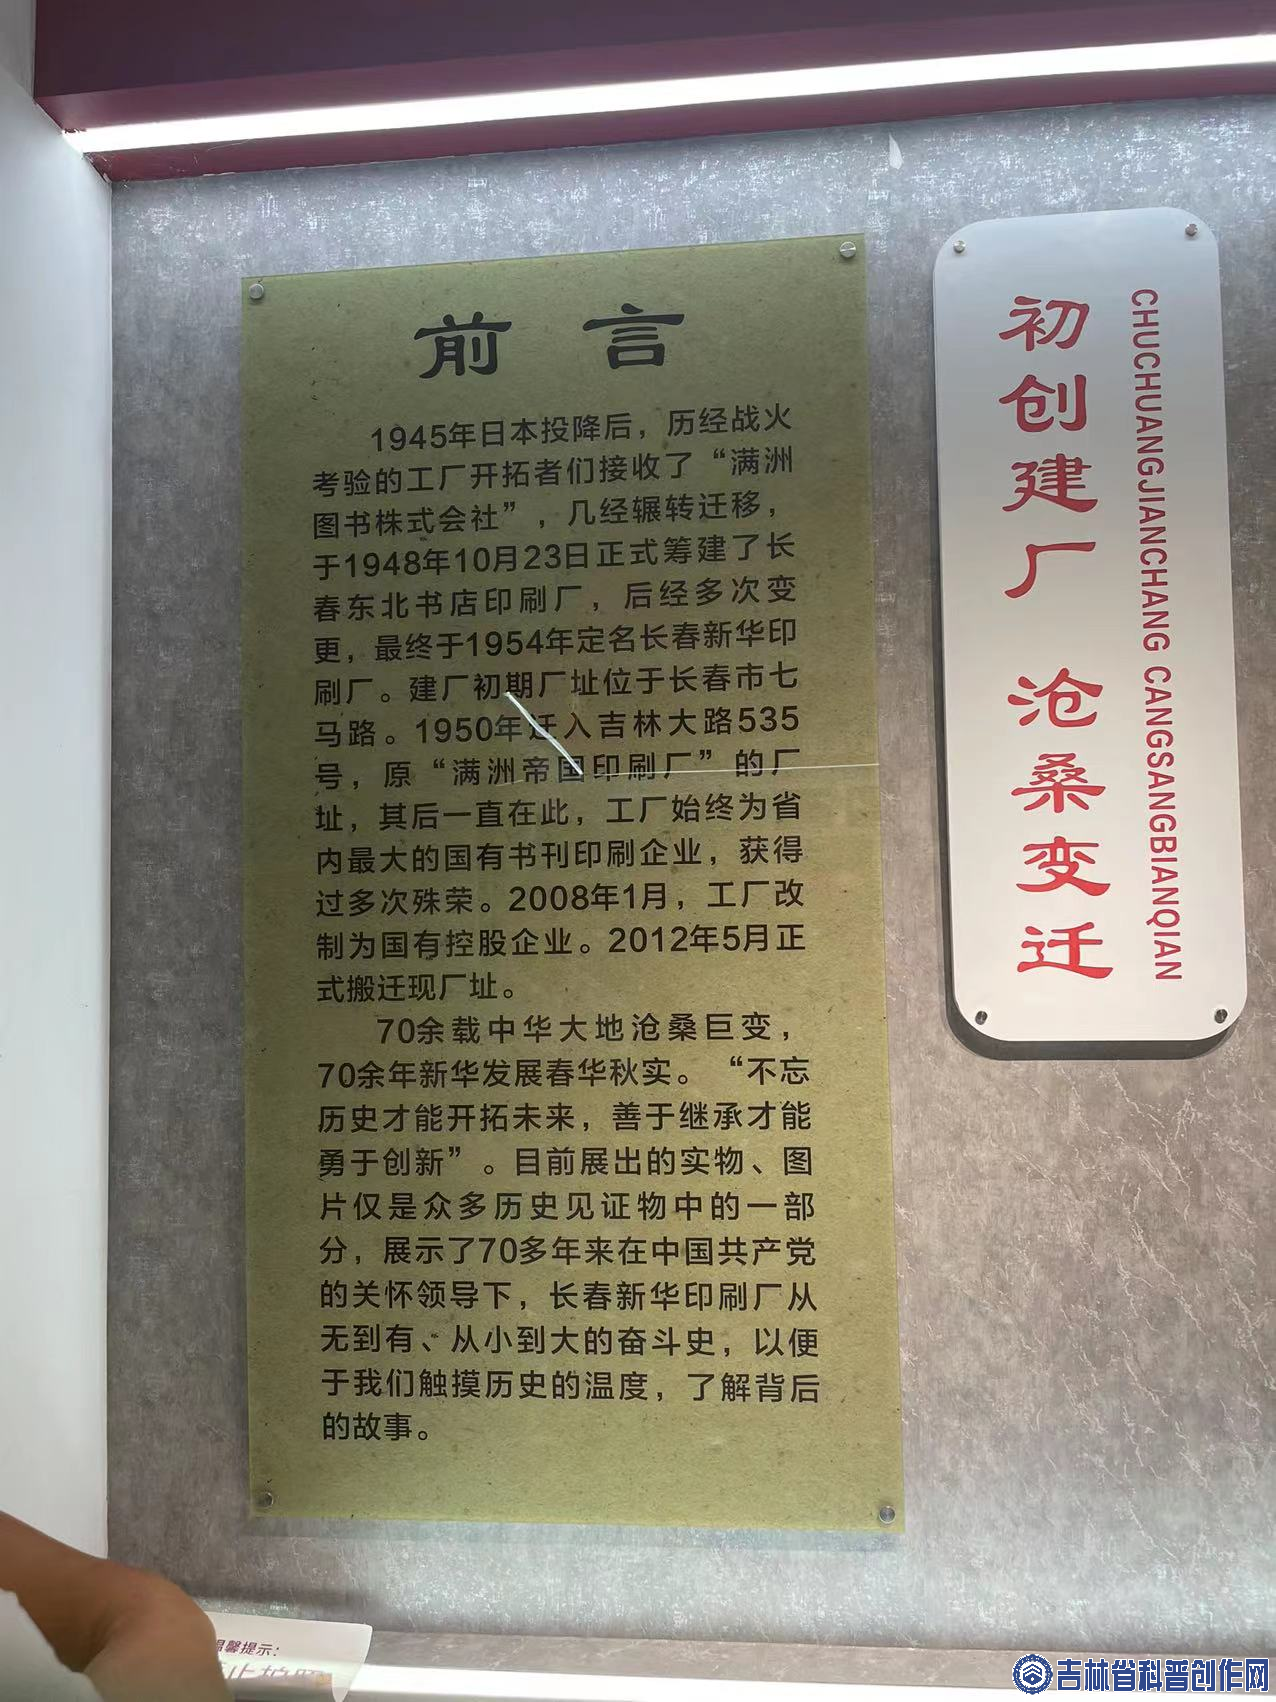 前言
1945年日本投降后，历经战火
考验的工厂开拓者们接收了“满洲
图书株式会社”，几经辗转迁移，
于1948年10月23日正式筹建了长
春东北书店印刷厂，后经多次变
更，最终于1954年定名长春新华印
刷厂。建厂初期厂址位于长春市七
马路。1950年迁入吉林大路535
号，原“满洲帝国印刷厂”的厂
址，其后一直在此，工厂始终为省
内最大的国有书刊印刷企业，获得
过多次殊荣。2008年1月，工厂改
制为国有控股企业。2012年5月正
式搬迁现厂址。
70余载中华大地沧桑巨变，
70余年新华发展春华秋实。“不忘
历史才能开拓未来，善于继承才能
勇于创新”。目前展出的实物、图
片仅是众多历史见证物中的一部
分，展示了70多年来在中国共产党
的关怀领导下，长春新华印刷厂从
无到有、从小到大的奋斗史，以便
于我们触摸历史的温度，了解背后
的故事。
初创建厂 沧桑变迁
CHUCHUANGJIANCHANG CANGSANGBIANQIAN
温馨提示：
吉林省科普创作网